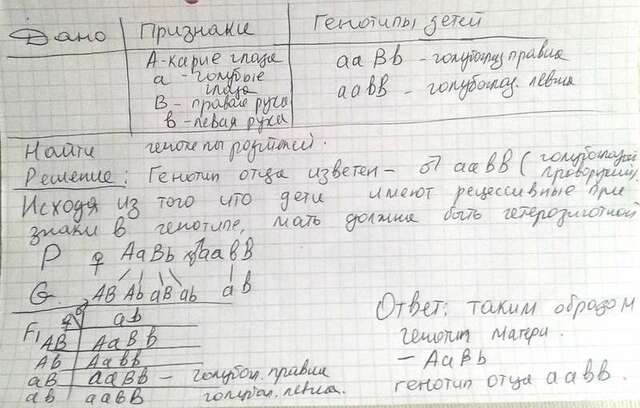 Дано Признаки Генотипы детей
А - карие глаза ааВb - голубоглаз правша
а - голубые глаза аавв - голубоглаз. левша
В - правая рука
в - левая рука
Найти генотипы родителей.
Решение: Генотип отца изветен - ♂ аавв (голубоглазый
Исходя из того что дети имеют рецессивные при
знаки в генотипе, мать должна быть гетерозиготной
P ♀ АаВb х ♂ аавв
G. АВ Аb аВ аb ав
F1 ♀ ♂ ав
АВ АаВв
Ab Аавв
аВ ааВв - голубогл. правша
ab аавв голубогл. левша.
Ответ: таким образом
генотип матери
- АаВb
генотип отца аавв.